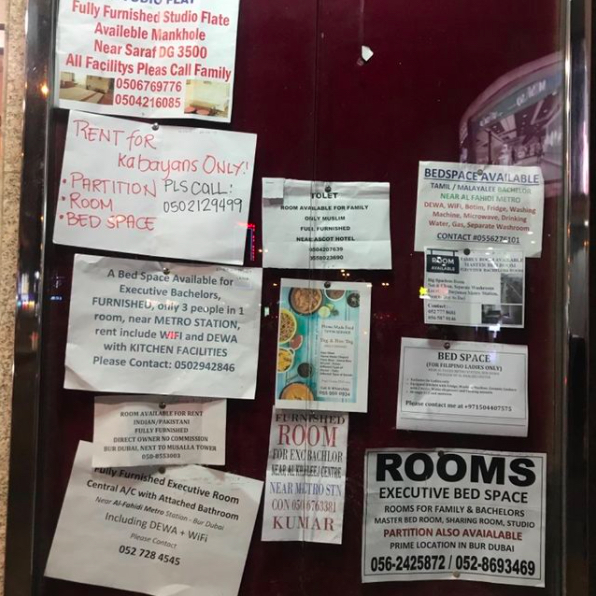 Fully Furnished Studio Flate
Availeble Mankhole
Near Saraf DG 3500
All Facilitys Pleas Call Family
0506769776
0504216085
RENT FOR
Kabayans ONLY!
• PARTITION
• ROOM
• BED SPACE
PLS CALL:
0502129499
TOLET
ROOM AVAILABLE FOR FAMILY
ONLY MUSLIM
FULL FURNISHED
NEAR ASCOT HOTEL
BEDSPACE AVAILABLE
TAMIL / MALAYALEE BACHELOR
NEAR AL FAHIDI METRO
DEWA, WiFi, Botim, Fridge, Washing
Machine, Microwave, Drinking
Water, Gas, Separate Washroom
A Bed Space Available for
Executive Bachelors,
FURNISHED, only 3 people in 1
room, near METRO STATION,
rent include WIFI and DEWA
with KITCHEN FACILITIES
Please Contact: 0502942846
ROOM
AVAILABLE
BED SPACE
(FOR FILIPINO LADIES ONLY)
Please contact me at +971504407575
ROOM AVAILABLE FOR RENT
INDIAN/PAKISTANI
FULLY FURNISHED
DIRECT OWNER NO COMMISSION
BUR DUBAI, NEXT TO MUSALLA TOWER
FURNISHED
ROOM
FOR EXC BACHLOR
NEAR AL KHALEEJ CENTRE
NEAR METRO STN
CON 050 6763381
KUMAR
Fully Furnished Executive Room
Central A/C with Attached Bathroom
Near Al-Fahidi Metro Station - Bur Dubai
Including DEWA + WiFi
Please Contact
052 728 4545
ROOMS
EXECUTIVE BED SPACE
ROOMS FOR FAMILY & BACHELORS
MASTER BED ROOM, SHARING ROOM, STUDIO
PARTITION ALSO AVAIALABLE
PRIME LOCATION IN BUR DUBAI
056-2425872 / 052-8693469